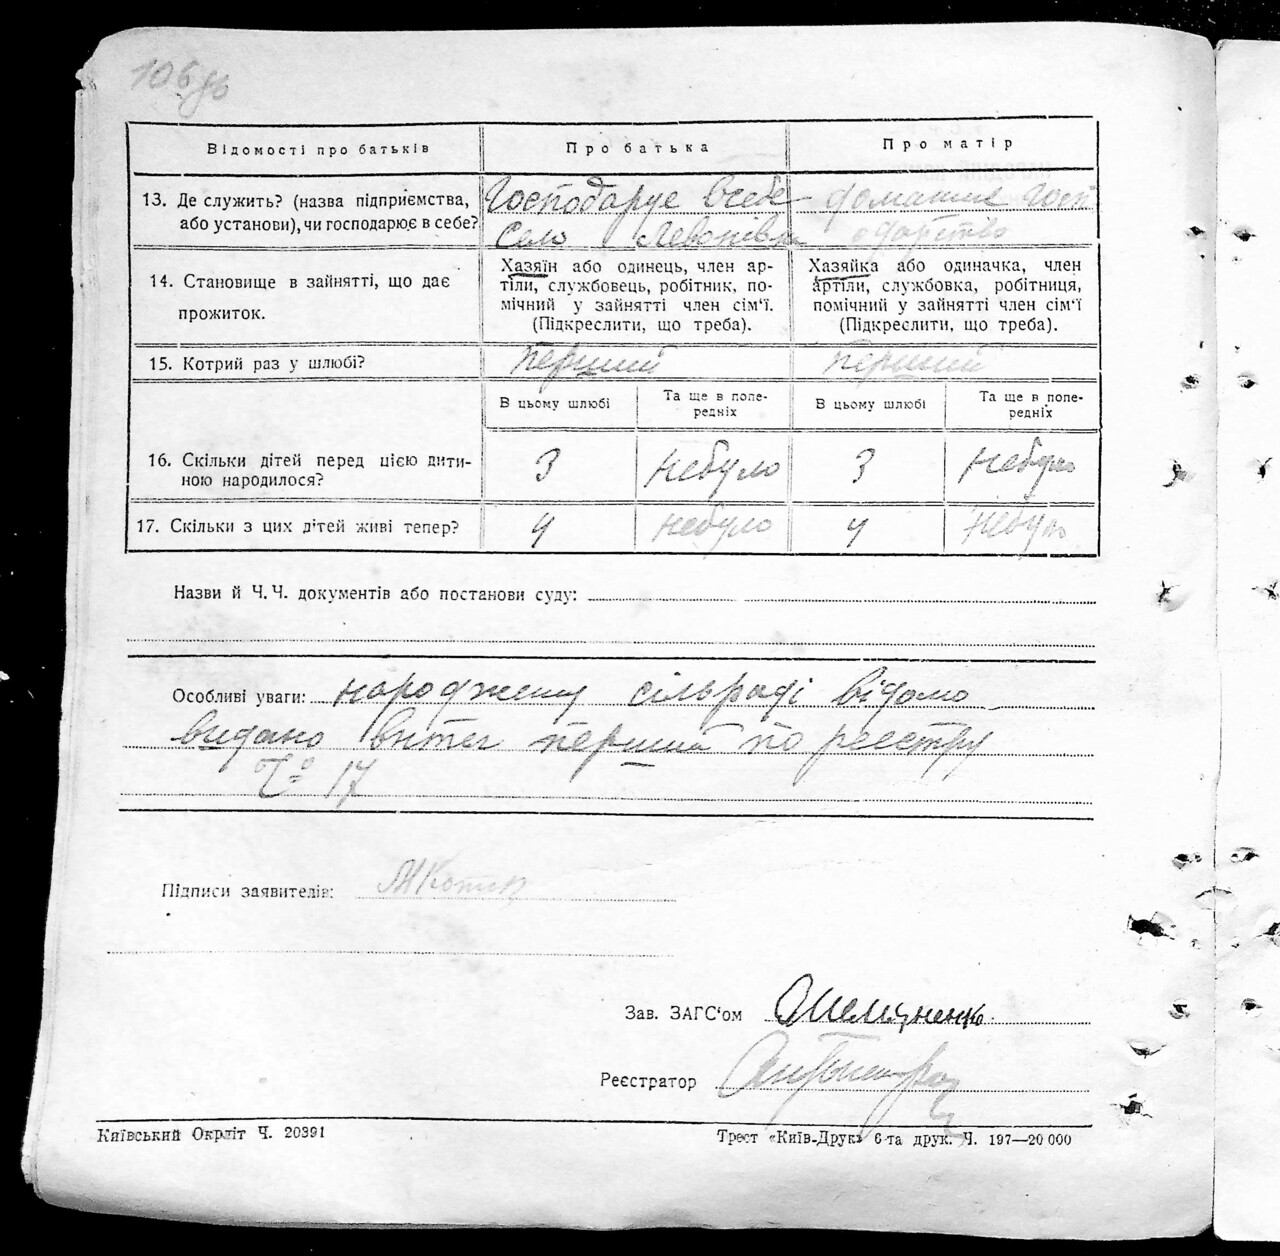 106 зв
Відомості про батьків
Про батька
Про матір
13. Де служить? (назва підприємства,
або установи), чи господарює в себе?
Господарує всебе
село Левонівка
домашнє госп
одарство
14. Становище в зайнятті, що дає
прожиток.
Хазяїн або одинець, член ар-
тіли, службовець, робітник, по-
мічний у зайнятті член сім'ї.
(Підкреслити, що треба).
Хазяйка або одиначка, член
артіли, службовка, робітниця,
помічний у зайнятті член сім'ї
(Підкреслити, що треба).
15. Котрий раз у шлюбі?
Перший
Перший
В цьому шлюбі
Та ще в попе-
редніх
В цьому шлюбі
Та ще в попе-
редніх
16. Скільки дітей перед цією дити-
ною народилося?
3
небуло
3
небуло
17. Скільки з цих дітей живі тепер?
4
небуло
4
небуло
Назви й Ч. Ч. документів або постанови суду:
Особливі уваги: народжену сільраді відомо
видано витяг перший по реєстру
№ 17
Підписи заявителів:
Зав. ЗАГС'ом
Реєстратор
Київський Окрліт Ч. 20391
Трест «Київ-Друк» 6-та друк. Ч. 197—20 000